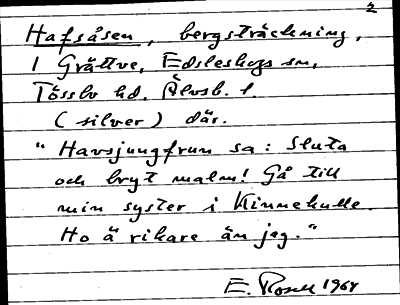 2
Hafsåsen, bergsträckning,
i Grättve, Edsleskogs sn,
Tössbo hd. Älvsb. l.
(silver) där.
"Havsjungfrun sa: Sluta
och bryt malm! Gå till
min syster i Kinnekulle.
Ho ä rikare än jag."
E. Rosell 1964